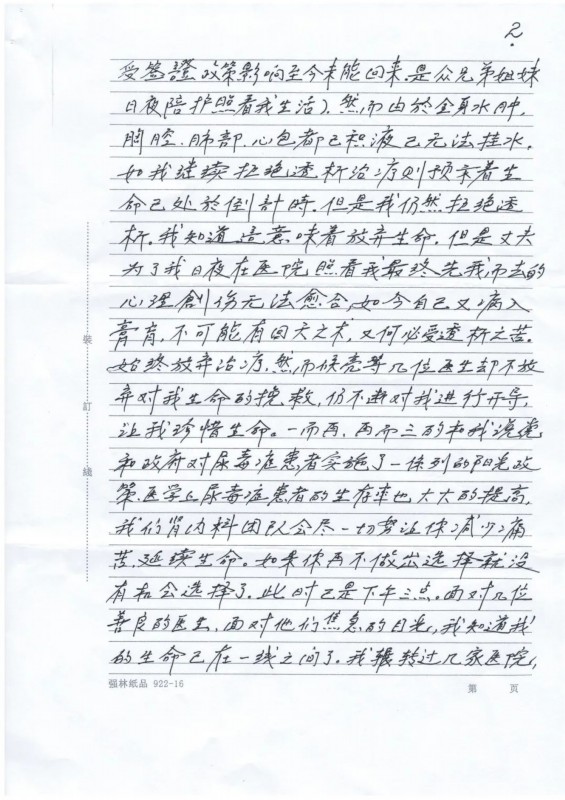 2.
受签證政策影响至今未能回来.是众兄弟姐妹
日夜陪护照看我生活).然而由於全身水肿.
胸腔.肺部.心包都已积液已无法挂水.
如我继续拒绝透析治疗则预示着生
命已处於倒計時.但是我仍然拒绝透
析.我知道這意味着放弃生命.但是丈夫
为了我日夜在医院照看我最终先我而去的
心理創伤无法愈合,如今自己又病入
膏肓,不可能有回天之术,又何必受透析之苦.
始终放弃治疗.然而候亮等几位医生却不放
弃对我生命的挽救,仍不断对我进行开导,
让我珍惜生命。一而再,再而三的和我说党
和政府对尿毒症患者实施了一係列的阳光政
策医学上尿毒症患者的生存率也大大的提高,
我们肾内科团队会尽一切努让你减少痛
苦延续生命。如果你再不做出选择就没
有机会选择了.此时已是下午三点.面对几位
善良的医生,面对他们焦急的目光,我知道我
的生命已在一线之间了.我辗转过几家医院,
裝
訂
綫
强林纸品 922-16 第 页